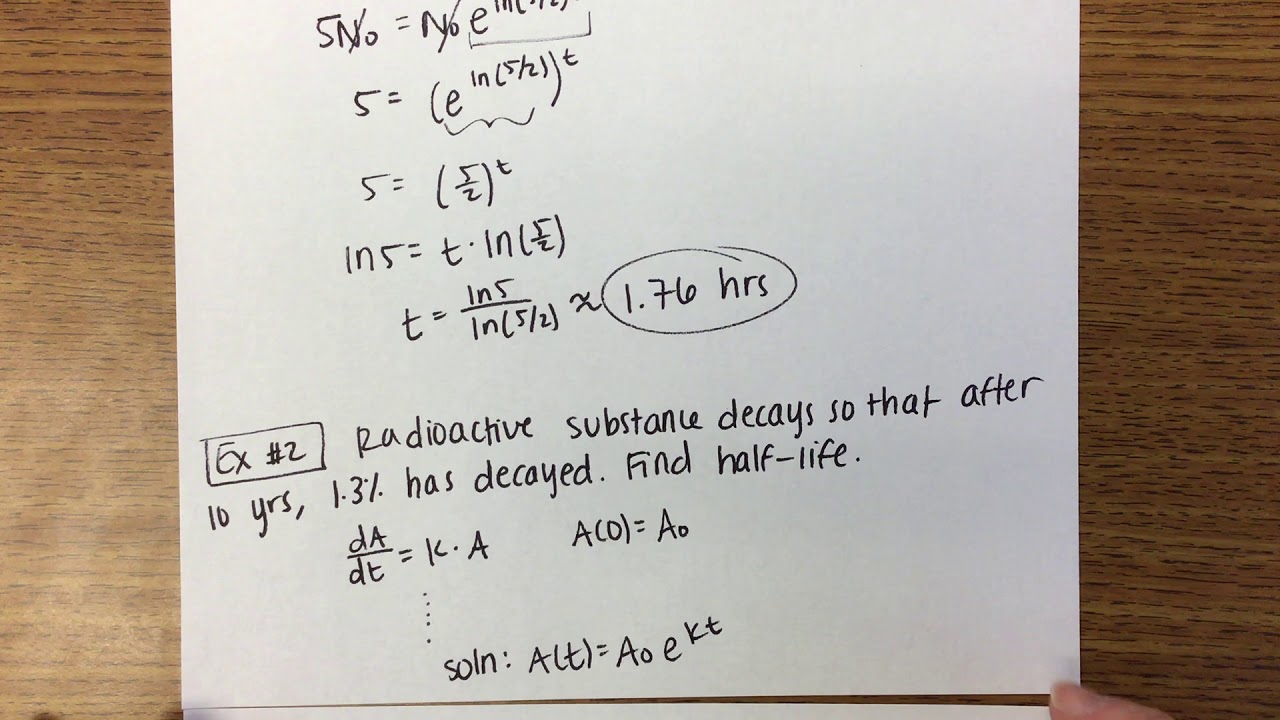 5N₀ = N₀ e^ln(5/2)
5 = (e^ln(5/2))^t
5 = (5/2)^t
ln5 = t · ln(5/2)
t = ln5/ln(5/2) ≈ 1.76 hrs
Ex #2 Radioactive substance decays so that after
10 yrs, 1.3% has decayed. Find half-life.
dA/dt = K · A A(0) = A₀
soln: A(t) = A₀ e^kt